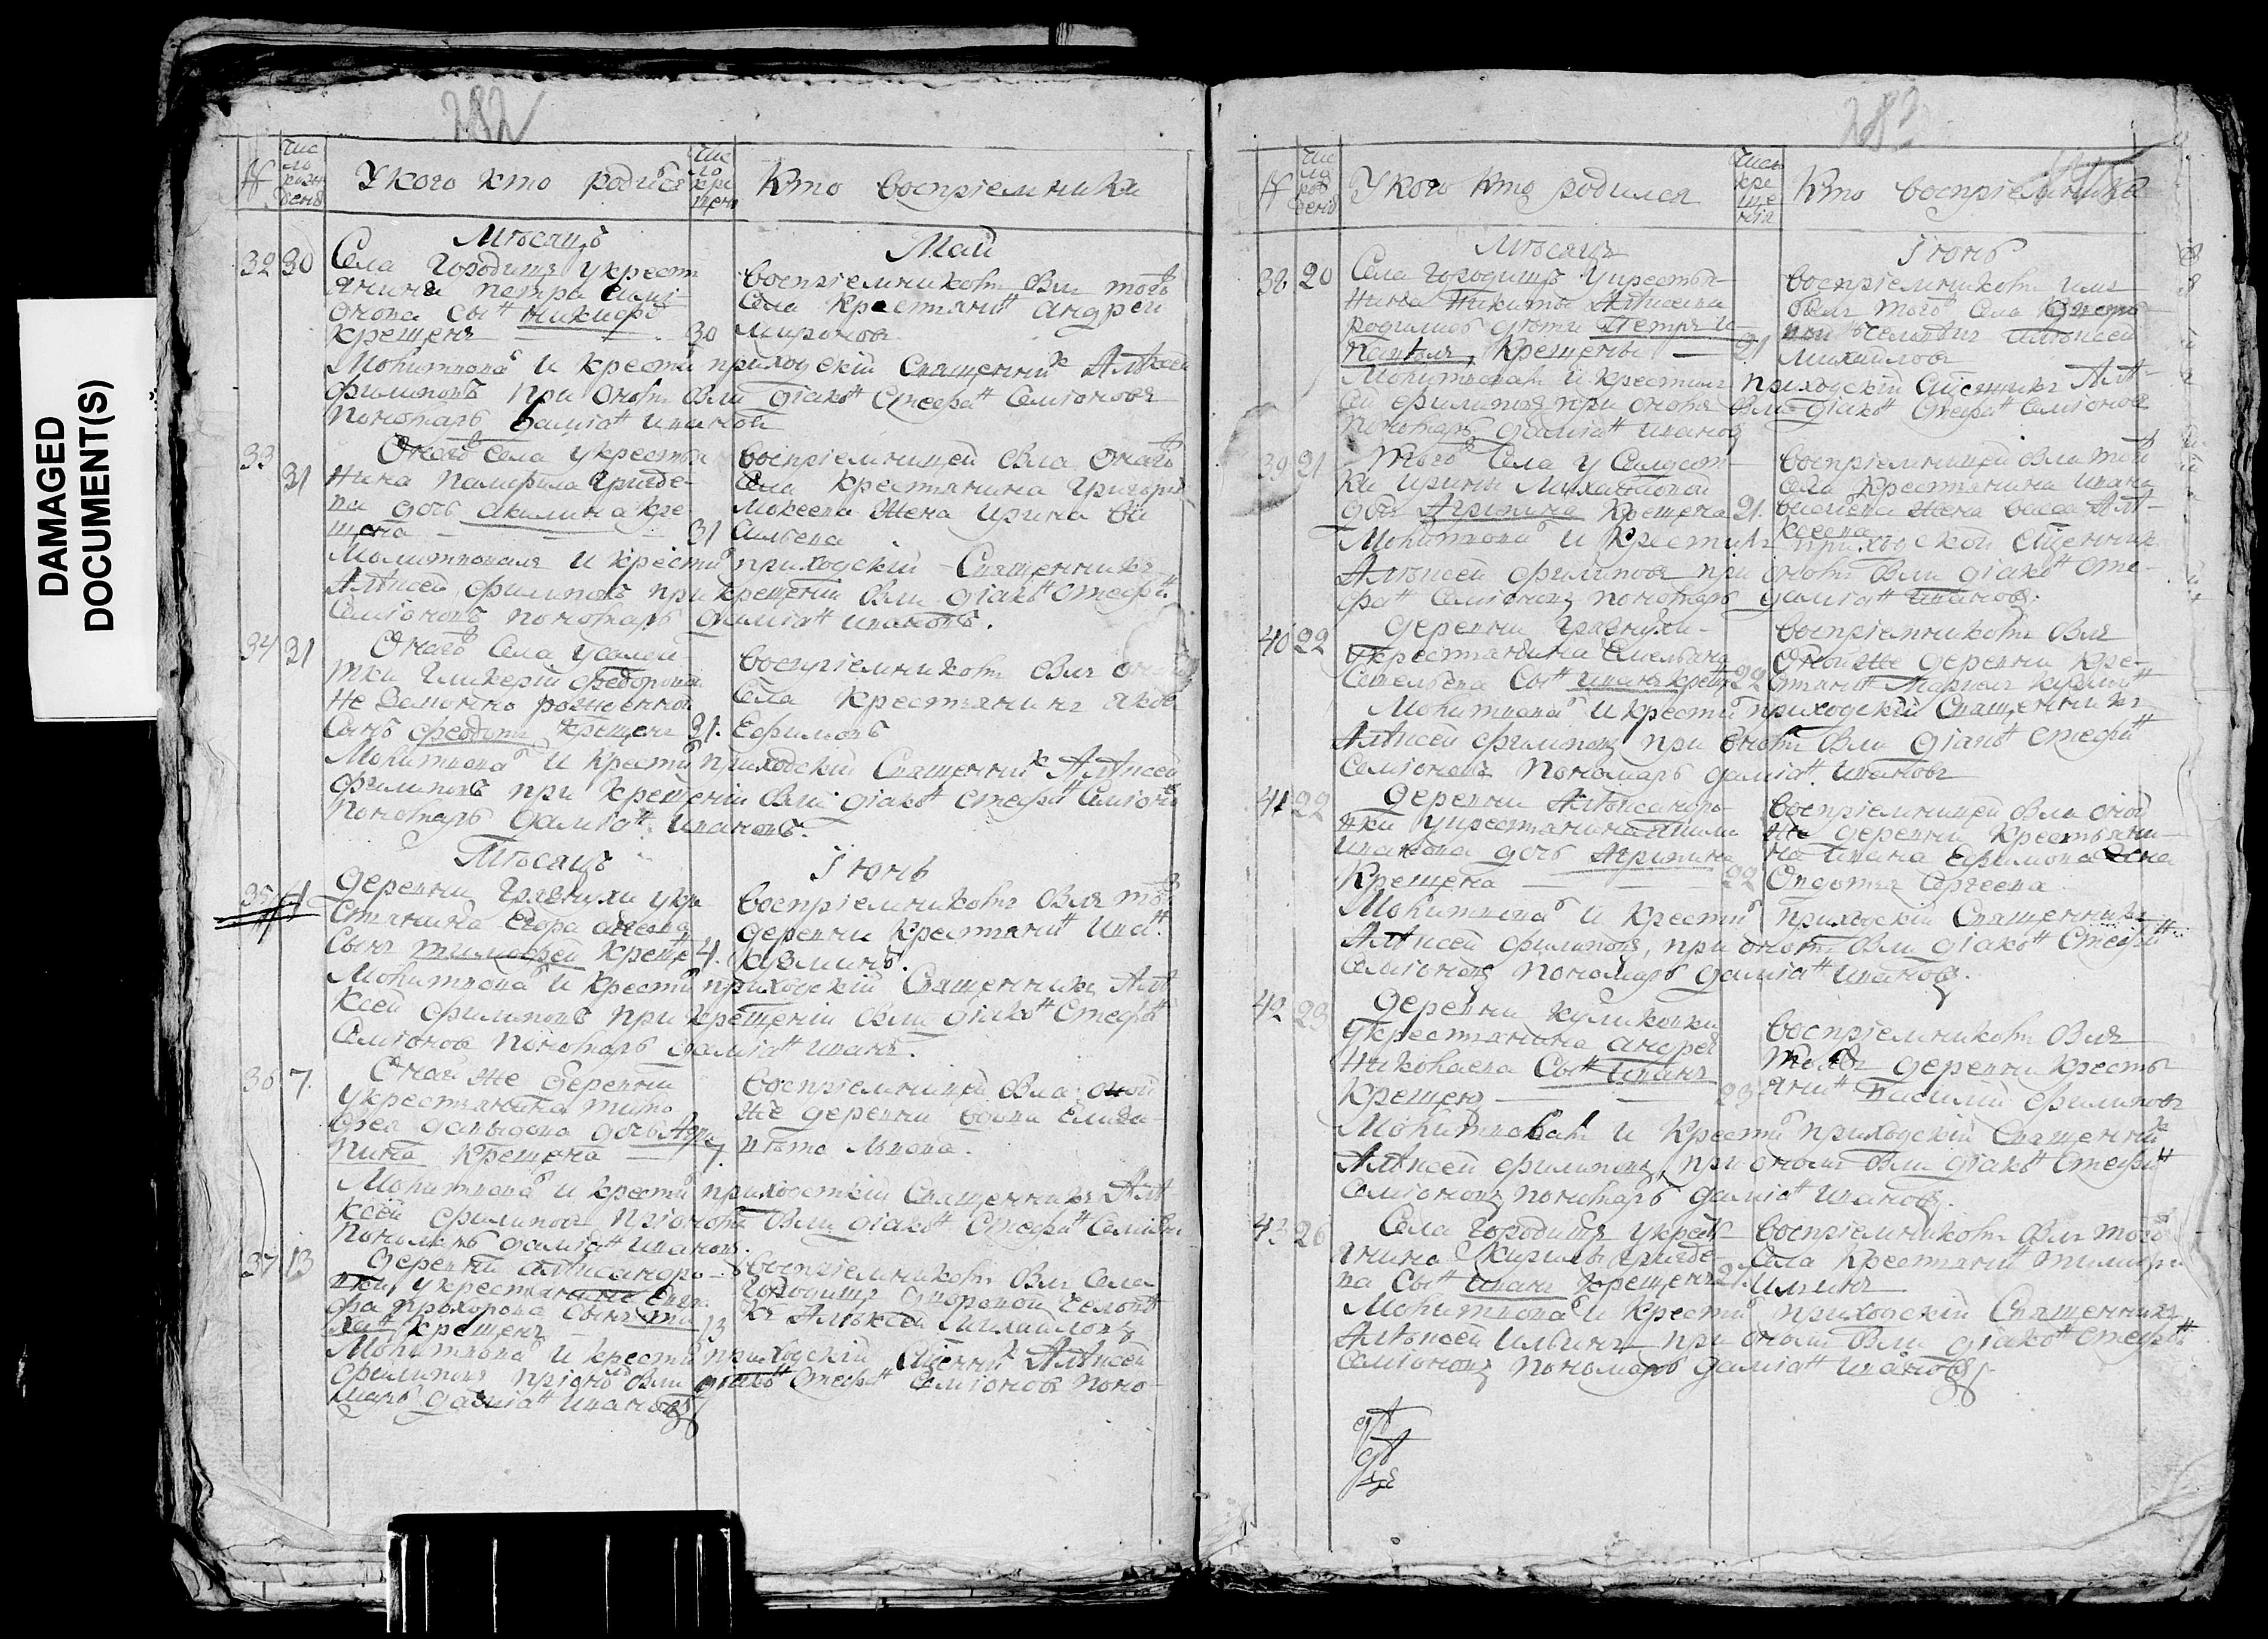 DAMAGED
DOCUMENT(S)
282
№
Число рождения
У кого кто родился
Число крещен
Кто восприемники
Месяцъ
Май
32 30
Села Городищъ у крестьянина Петра
сынъ Никифоръ
крещенъ 30
восприемникомъ былъ того
села крестянинъ Андрей
Мироновъ
Молитвовалъ и крести приходский священникъ Алѣксей
Филиповъ при ономъ были діаконъ Стефанъ Семіоновъ
пономарь Даміанъ Ивановъ
33 31
Онаго села у крестья
нина Памфила
дочь Акилина кре
щена 31
восприемницей была онаго
села крестянина Григорья
Мокеева жена Ирина Ва
сильева
Молитвовалъ и крести приходский священникъ
Алѣксей Филиповъ при крещеніи были діаконъ Стефанъ
Семіоновъ пономарь Даміанъ Ивановъ.
34 31
Онаго села у солдатки Гликерии Федоровой
не законно рожденной
сынъ Федотъ крещенъ 31.
восприемникомъ былъ онаго
села крестянинъ
Ефимовъ
Молитвовалъ и крести приходский священникъ Алѣксей
Филиповъ при крещеніи были діаконъ Стефанъ Семіоновъ
пономарь Даміанъ Ивановъ.
Месяцъ
Іюнь
35 4
Деревни Грязнухи у кре
стянина Егора
сынъ Тимофей крещенъ 4.
восприемникомъ былъ той
деревни крестянинъ Иванъ
Кузминъ.
Молитвовалъ и крести приходский священникъ Алѣ
ксей Филиповъ при крещеніи были діаконъ Стефанъ
Семіоновъ пономарь Даміанъ Иванъ.
36 7.
Оной же деревни
у крестянина Тимо
фея Давыдова дочь Агри
пина крещена 7.
восприемницей была оной
же деревни вдова Елиза
вѣта Львова.
Молитвовалъ и крести приходский священникъ Алѣ
ксей Филиповъ при ономъ были діаконъ Стефанъ Семіонов
пономарь Даміанъ Ивановъ.
37 13
Деревни Алѣксандро
вки у крестянина
Прохорова сынъ
крещенъ 13
восприемникомъ былъ села
Городищъ дворовой челове
къ Алѣксей Михайловъ
Молитвовалъ и крести приходский священникъ Алѣксей
Филиповъ при ономъ были діаконъ Стефанъ Семіоновъ поно
марь Даміанъ Ивановъ
283
№
Число рождения
У кого кто родился
Число крещения
Кто восприемники
Месяцъ
Іюнь
38 20
Села Городищъ у крестья
нина Никиты Алѣксеева
родились дѣти Петръ и
Павелъ, крещены 21
восприемникомъ
былъ того села дворо
вой человекъ Алѣксей
Михайловъ
Молитвовалъ и крестилъ приходский священникъ Алѣ
сей Филиповъ при ономъ были діаконъ Стефанъ Семіоновъ
пономарь Даміанъ Ивановъ
39 21
Того села у солдат
ки Ирины Михайловой
дочь Агрипина крещена 21.
восприемницей была того
села крестянина Ивана
жена Васса Алѣ
ксеева
Молитвовалъ и крестилъ приходской священникъ
Алѣксей Филиповъ при ономъ были діаконъ Сте
фанъ Семіоновъ пономарь Даміанъ Ивановъ.
40 22
Деревни Грязнухи
у крестьянина Емельяна
Савельева сынъ Иванъ крещенъ 22
восприемникомъ былъ
оной же деревни кре
стянинъ Маркелъ
Молитвовалъ и крести приходский священникъ
Алѣксей Филиповъ при ономъ были діаконъ Стефанъ
Семіоновъ пономарь Даміанъ Ивановъ
41 22
Деревни Алѣксандро
вки у крестянина
Иванова дочь Агрипина
крещена 22
восприемницей была оной
же деревни крестьяни
на Ивана Ефимова жена
Овдотья Сергеева
Молитвовалъ и крести приходский священникъ
Алѣксей Филиповъ, при ономъ были діаконъ Стефанъ
Семіоновъ пономарь Даміанъ Ивановъ.
42 23
Деревни Куликовки
у крестянина Андрея
Николаева сынъ Иванъ
крещенъ 23
восприемникомъ былъ
той же деревни кресть
янинъ Василий Филиповъ
Молитвовалъ и крести приходский священникъ
Алѣксей Филиповъ при ономъ были діаконъ Стефанъ
Семіоновъ пономарь Даміанъ Ивановъ.
43 26
Села Городищъ у крестья
нина Кирилы
сынъ Иванъ крещенъ 27.
восприемникомъ былъ того
села крестянинъ Тимофей
Ильинъ
Молитвовалъ и крести приходский священникъ
Алѣксей Ильинъ при ономъ были діаконъ Стефанъ
Семіоновъ пономарь Даміанъ Ивановъ